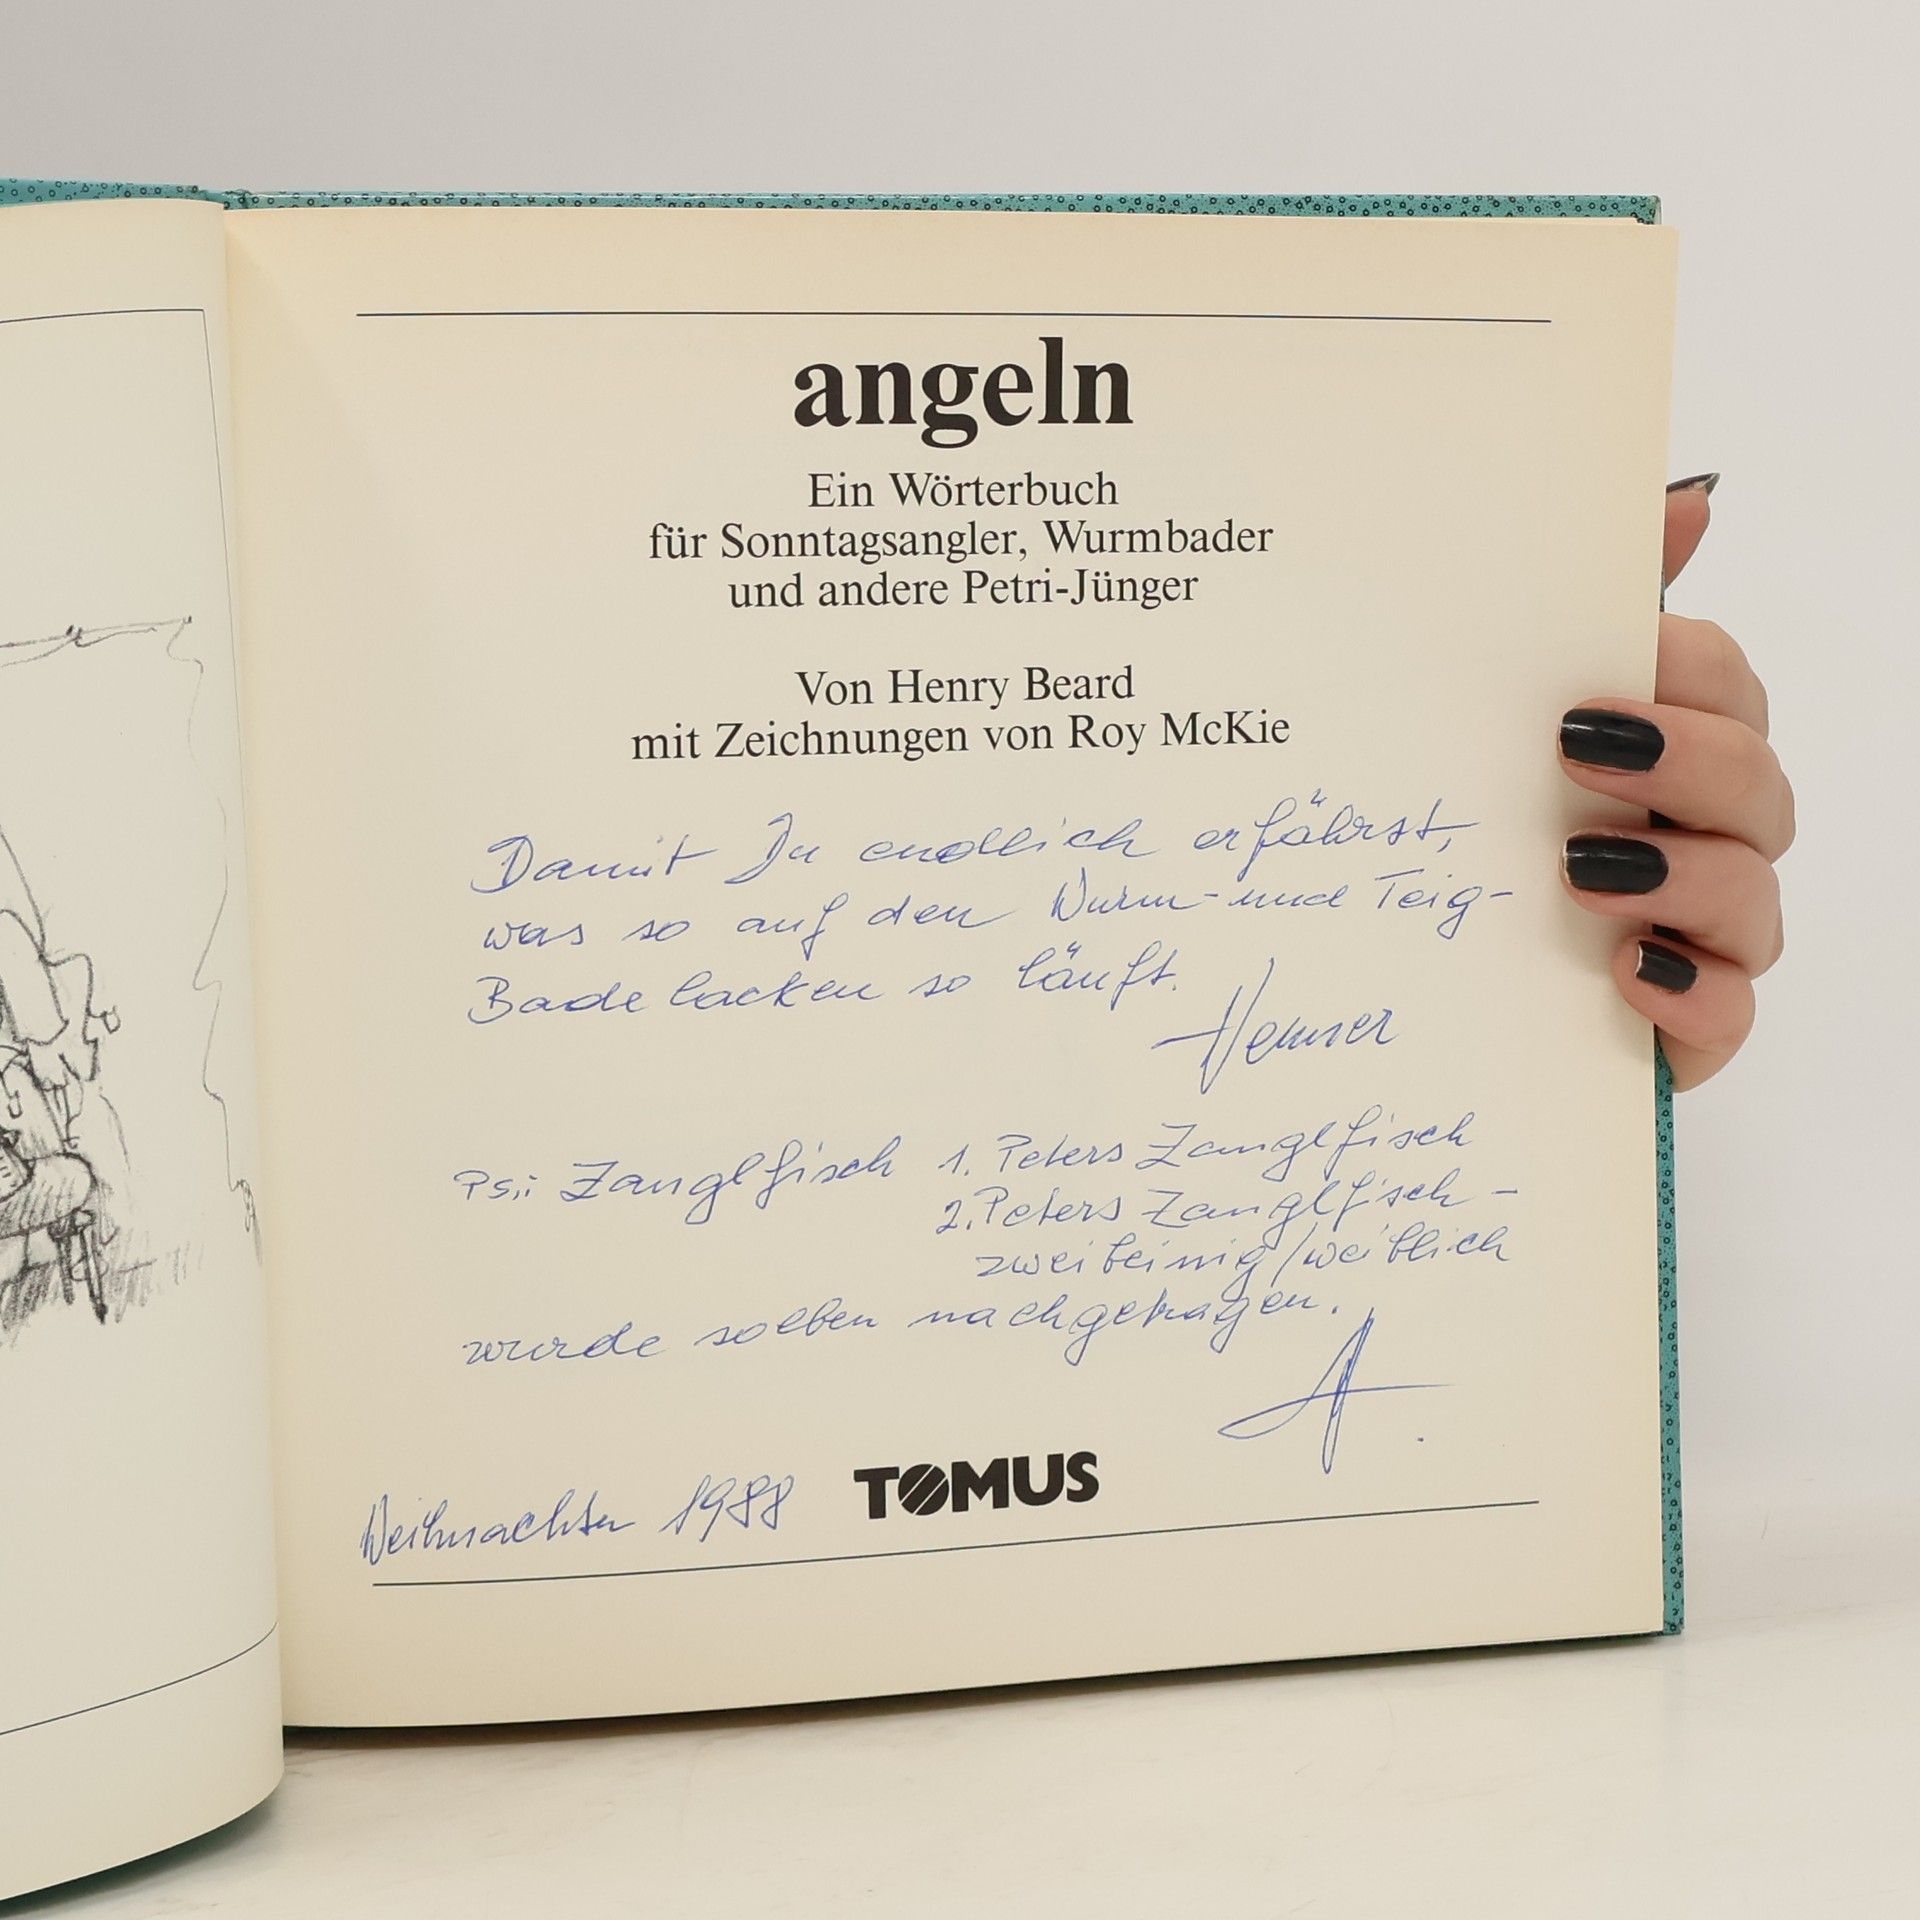 angeln
Ein Wörterbuch
für Sonntagsangler, Wurmbader
und andere Petri-Jünger
Von Henry Beard
mit Zeichnungen von Roy McKie
Damit Du endlich erfährst,
was so auf den Wurm- und Teig-
Badelacken so läuft.
Ps.: Zanglfisch 1. Peters Zanglfisch
2. Peters Zanglfisch -
zweibeinig/weiblich
wurde soeben nachgetragen.
A.
Weihnachten 1988
TOMUS